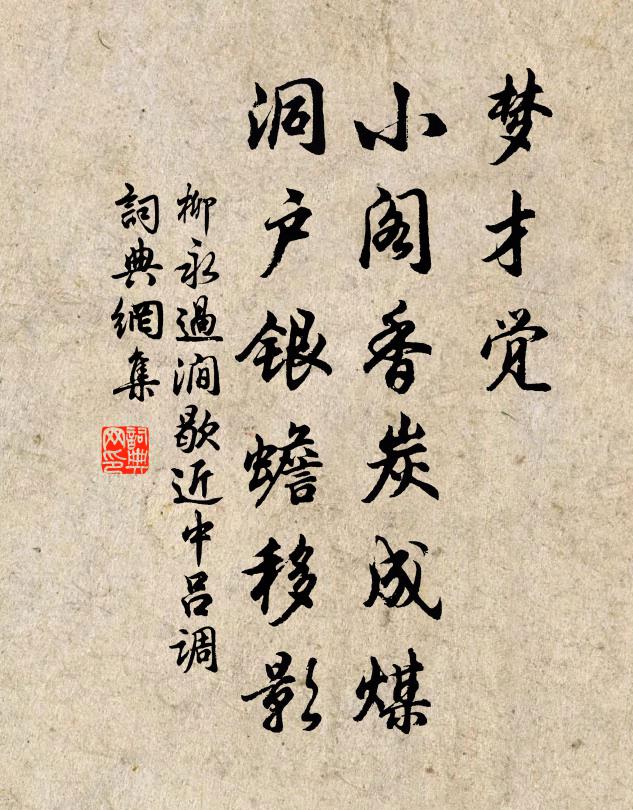 梦才觉
小阁香炭成煤
洞户银蟾移影
柳永過澗歇近中吕调
詞典網集
詞典
网印